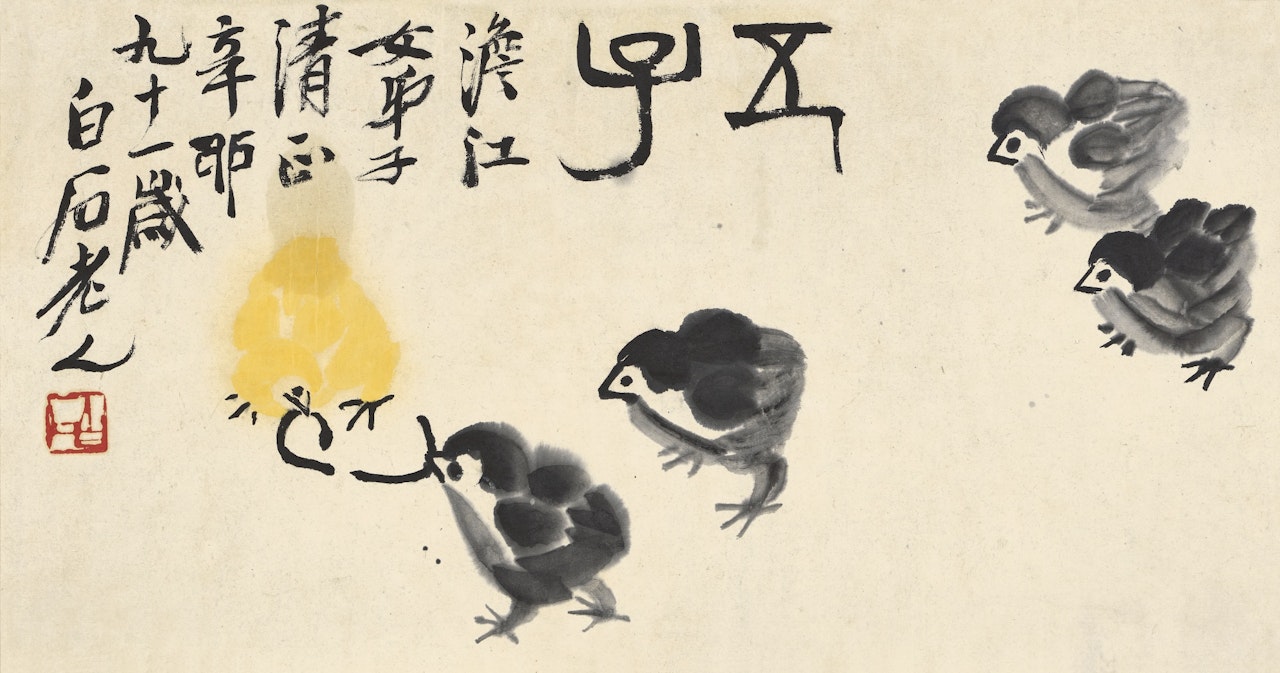 五子
澹江
女弟子
清正
辛卯
九十一歲
白石老人